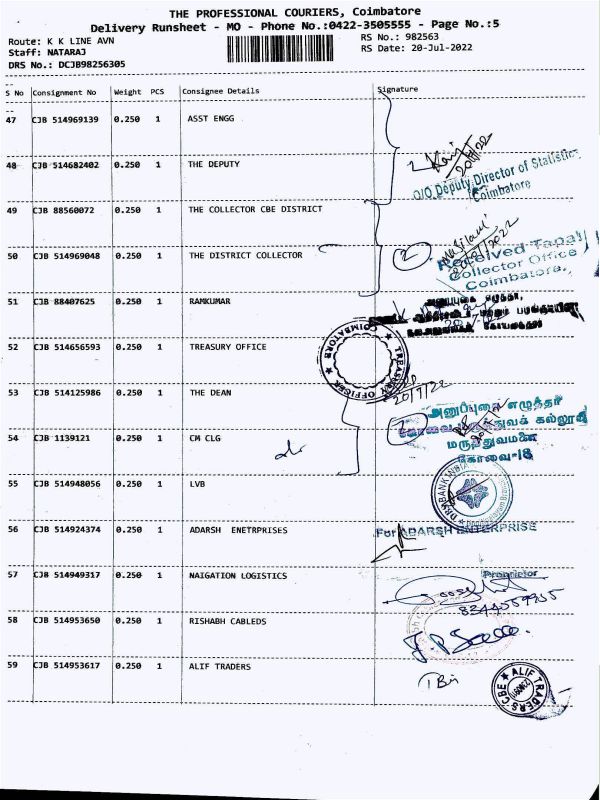 THE PROFESSIONAL COURIERS, Coimbatore
Delivery Runsheet - MO - Phone No.:0422-3505555 - Page No.:5
Route: K K LINE AVN
RS No.: 982563
Staff: NATARAJ
RS Date: 20-Jul-2022
DRS No.: DCJB98256305
S No Consignment No Weight PCS Consignee Details Signature
47 CJB 514969139 0.250 1 ASST ENGG
20/7/22
48 CJB 514682402 0.250 1 THE DEPUTY
O/O Deputy Director of Statistics
Coimbatore
49 CJB 88560072 0.250 1 THE COLLECTOR CBE DISTRICT
50 CJB 514969048 0.250 1 THE DISTRICT COLLECTOR
2
Received Tapal
Collector Office
Coimbatore.
51 CJB 88407625 0.250 1 RAMKUMAR
52 CJB 514656593 0.250 1 TREASURY OFFICE
COIMBATORE
TREASURY OFFICER
53 CJB 514125986 0.250 1 THE DEAN
20/7/22
அனுப்புகை எழுத்தர்
கோவை மருத்துவக் கல்லூரி
54 CJB 1139121 0.250 1 CM CLG
மருத்துவமனை
கோவை-18
55 CJB 514948056 0.250 1 LVB
DBS BANK INDIA
56 CJB 514924374 0.250 1 ADARSH ENETRPRISES
For ADARSH ENTERPRISE
57 CJB 514949317 0.250 1 NAIGATION LOGISTICS
Proprietor
58 CJB 514953650 0.250 1 RISHABH CABLEDS
59 CJB 514953617 0.250 1 ALIF TRADERS
ALIF TRADERS CBE